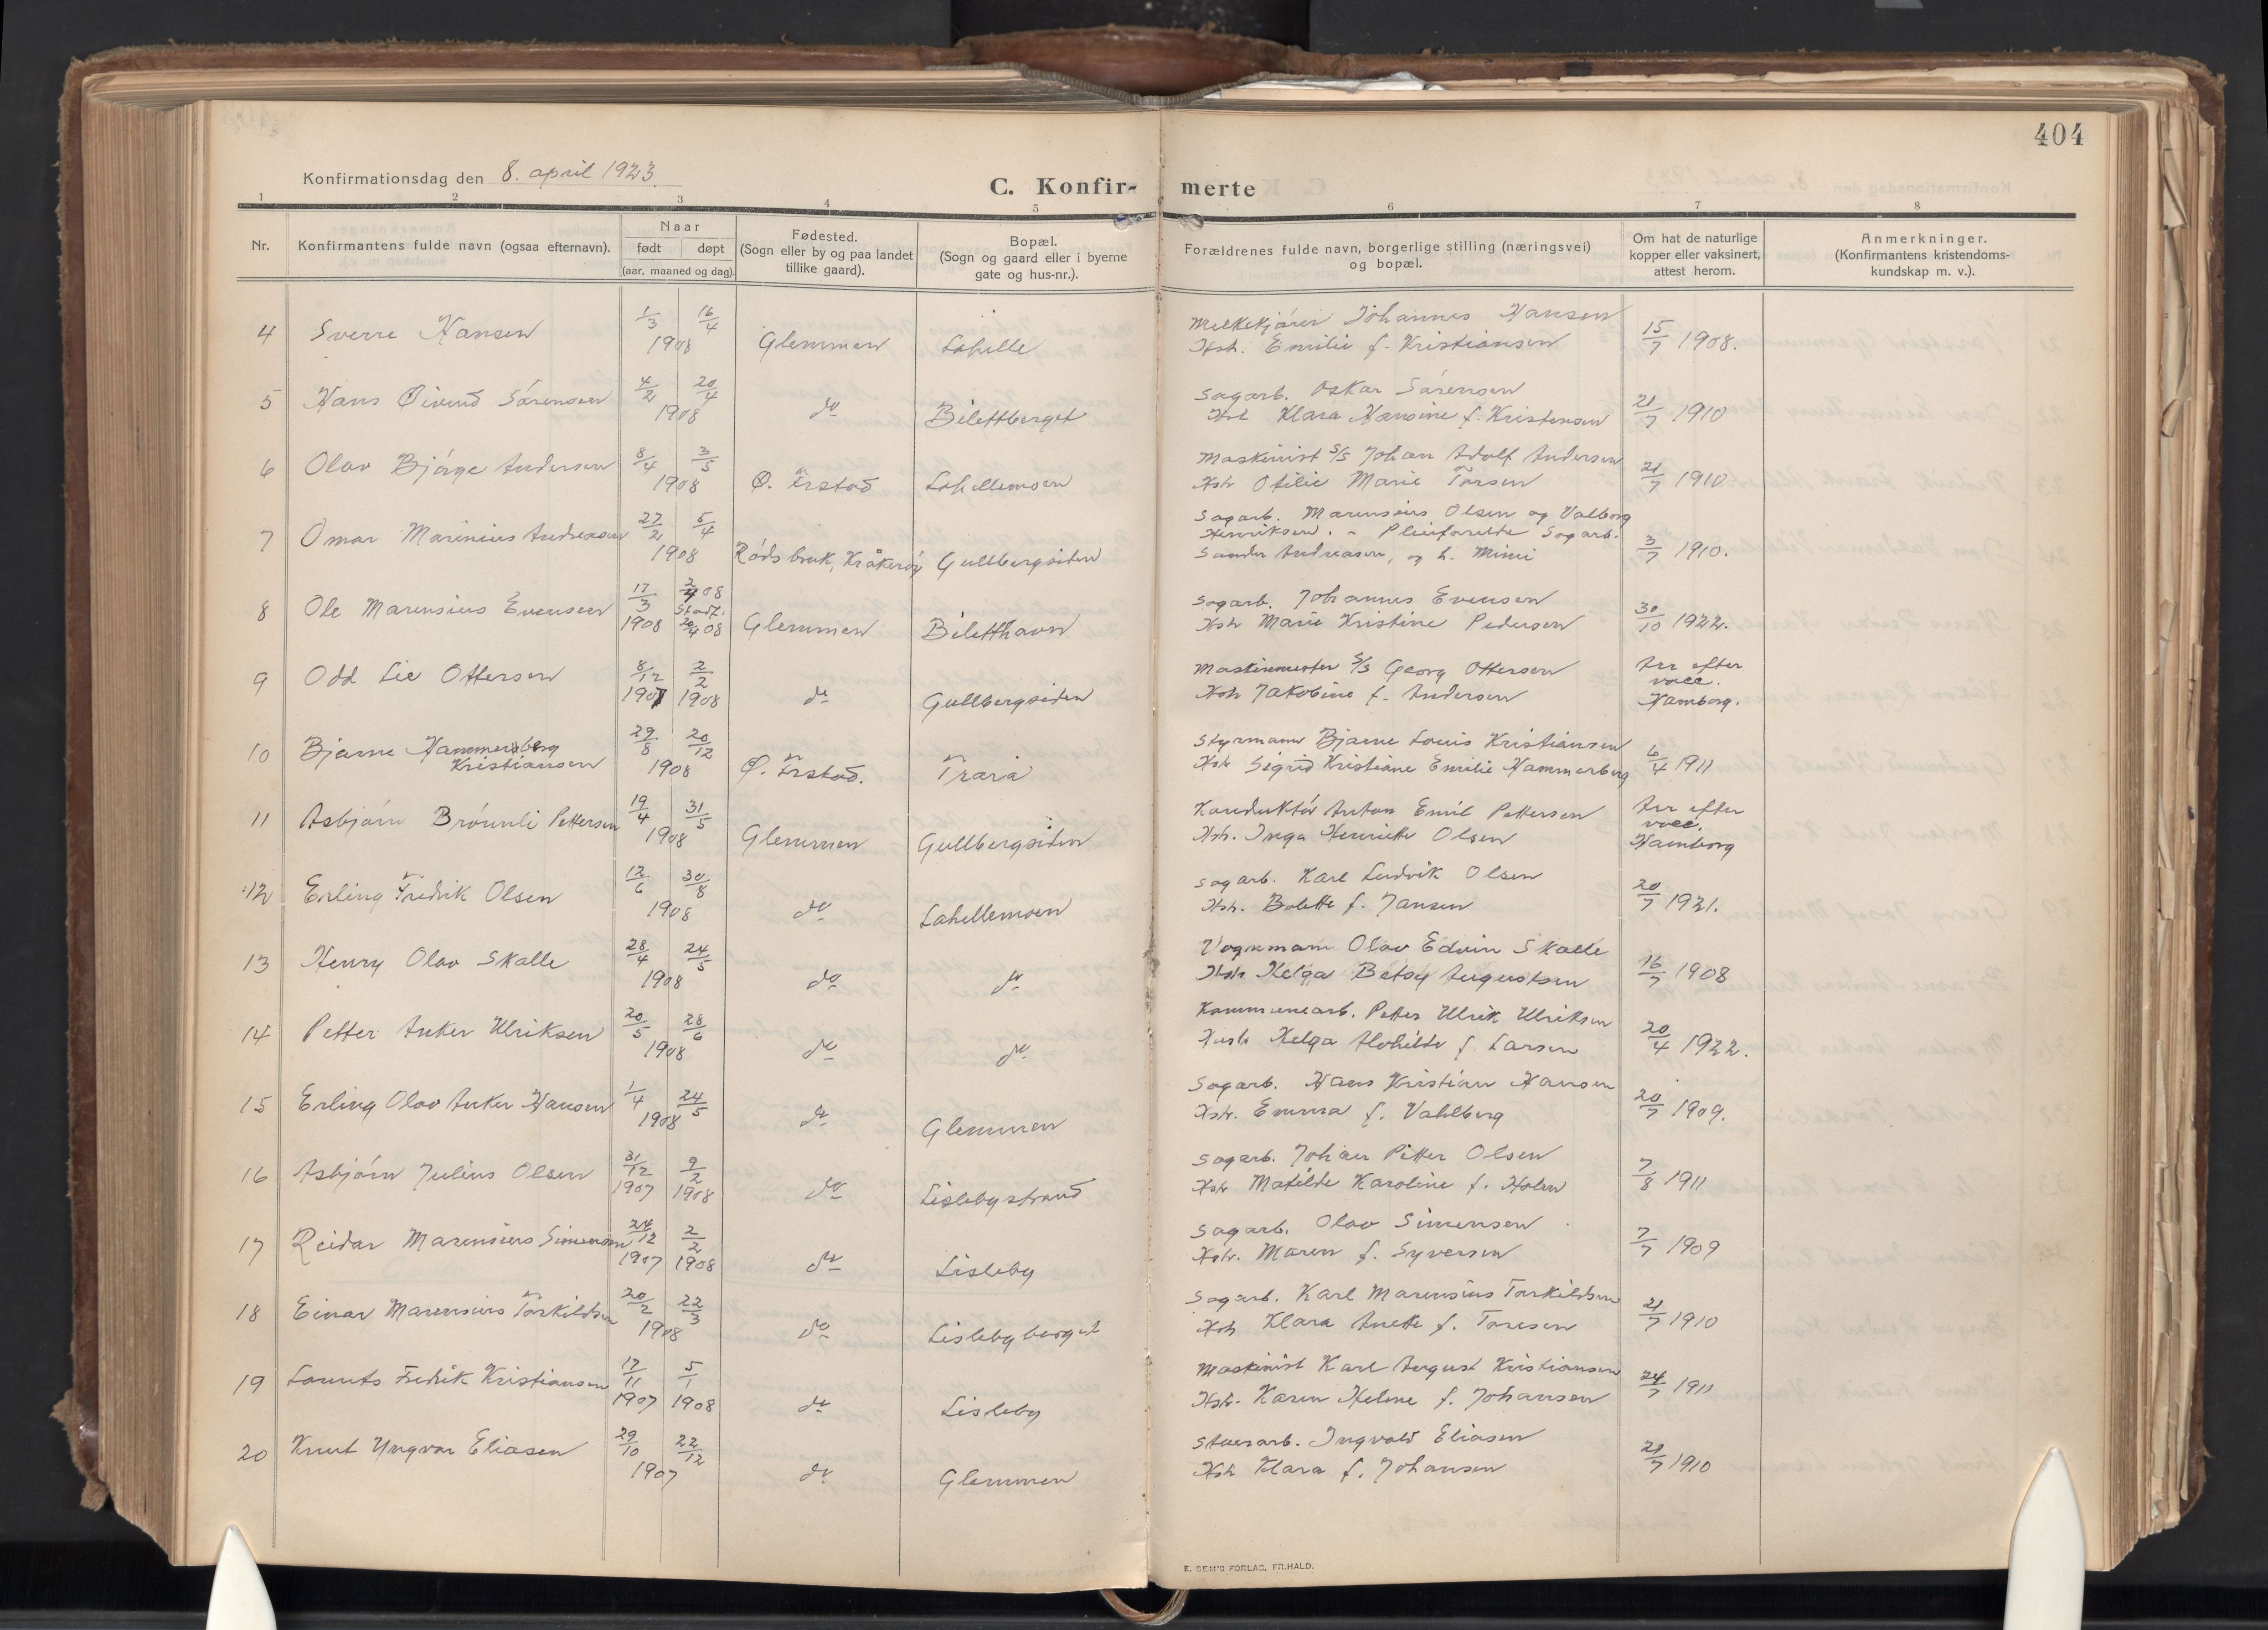 404
Konfirmationsdag den 8. april 1923.
C. Konfir- merte
1 2 3 4 5 6 7 8
Nr.
Konfirmantens fulde navn (ogsaa efternavn).
Naar
født døpt
(aar, maaned og dag).
Fødested.
(Sogn eller by og paa landet
tillike gaard).
Bopæl.
(Sogn og gaard eller i byerne
gate og hus-nr.).
Forældrenes fulde navn, borgerlige stilling (næringsvei)
og bopæl.
Om hat de naturlige
kopper eller vaksinert,
attest herom.
Anmerkninger.
(Konfirmantens kristendoms-
kundskap m. v.).
4 Sverre Hansen 1/3 16/4 1908 Glemmen Lahelle
Melkekjører Johannes Hansen
Hstr. Emilie f. Kristiansen 15/7 1908.
5 Hans Øivind Sørensen 4/2 20/4 1908 do Bilettberget
Sagarb. Oskar Sørensen
Hstr Klara Hansine f. Kristensen 21/7 1910
6 Olav Bjørge Andersen 8/4 3/5 1908 Ø. Frstad Lahellemoen
Maskinist S/S Johan Adolf Andersen
Hstr Otilie Marie Torsen 21/7 1910
7 Omar Marinius Andreasen 27/2 5/4 1908 Røds bruk, Kråkerøy Gullbergsiden
Sagarb. Marensius Olsen og Valborg
Henriksen. - Pleieforeldre Sagarb.
Sander Andreasen, og h. Mimi 3/7 1910.
8 Ole Marensius Evensen 17/3 1908 2/4 08
Stadf.
20/4 08 Glemmen Biletthavn
Sagarb. Johannes Evensen
Hstr Marie Kristine Pedersen 30/10 1922.
9 Odd Lie Ottersen 8/12 1907 2/2 1908 do Gullbergsiden
Maskinmester S/S Georg Ottersen
Hstr Jakobine f. Andersen
Arr efter
vacc.
Hamborg.
10 Bjarne Hammersberg
Kristiansen 29/8 20/12 1908 Ø. Frstad. Trara
Styrmann Bjarne Louis Kristiansen
Hstr Sigrid Kristiane Emilie Hammerberg 6/4 1911
11 Asbjørn Brønnli Pettersen 19/4 31/5 1908 Glemmen Gullbergsiden
Konduktør Anton Emil Pettersen
Hstr. Inga Henriette Olsen
Arr efter
vacc.
Hamborg
12 Erling Fredrik Olsen 12/6 30/8 1908 do Lahellemoen
Sagarb. Karl Ludvik Olsen
Hstr. Bolette f. Jansen 20/7 1921.
13 Henry Olav Skalle 28/4 24/5 1908 do do
Vognmann Olav Edvin Skalle
Hstr Helga Betsy Augustsen 16/7 1908
14 Petter Anker Ulriksen 20/5 28/6 1908 do do
Kommunearb. Petter Ulrik Ulriksen
Hustr Helga Alvhilde f. Larsen 20/4 1922.
15 Erling Olav Anker Hansen 1/4 24/5 1908 do Glemmen
Sagarb. Hans Kristian Hansen
Hstr. Emma f. Vahlberg 20/7 1909.
16 Asbjørn Julius Olsen 31/12 1907 9/2 1908 do Lislebystrand
Sagarb. Johan Petter Olsen
Hstr Matilde Karoline f. Holm 7/8 1911
17 Reidar Marensius Simensen 24/12 1907 2/2 1908 do Lisleby
Sagarb. Olav Simensen
Hstr. Maren f. Syversen 7/7 1909
18 Einar Marensius Torkildsen 20/2 22/3 1908 do Lislebyberget
Sagarb. Karl Marensius Torkildsen
Hstr Klara Anette f. Toresen 21/7 1910
19 Lauritz Fredrik Kristiansen 17/11 1907 5/1 1908 do Lisleby
Maskinist Karl August Kristiansen
Hstr. Karen Helene f. Johansen 24/7 1911
20 Knut Yngvar Eliasen 29/10 22/12 1907 do Glemmen
Stuerarb. Ingvald Eliasen
Hstr Klara f. Johansen 21/7 1910
E. SEM'S FORLAG, FR.HALD.